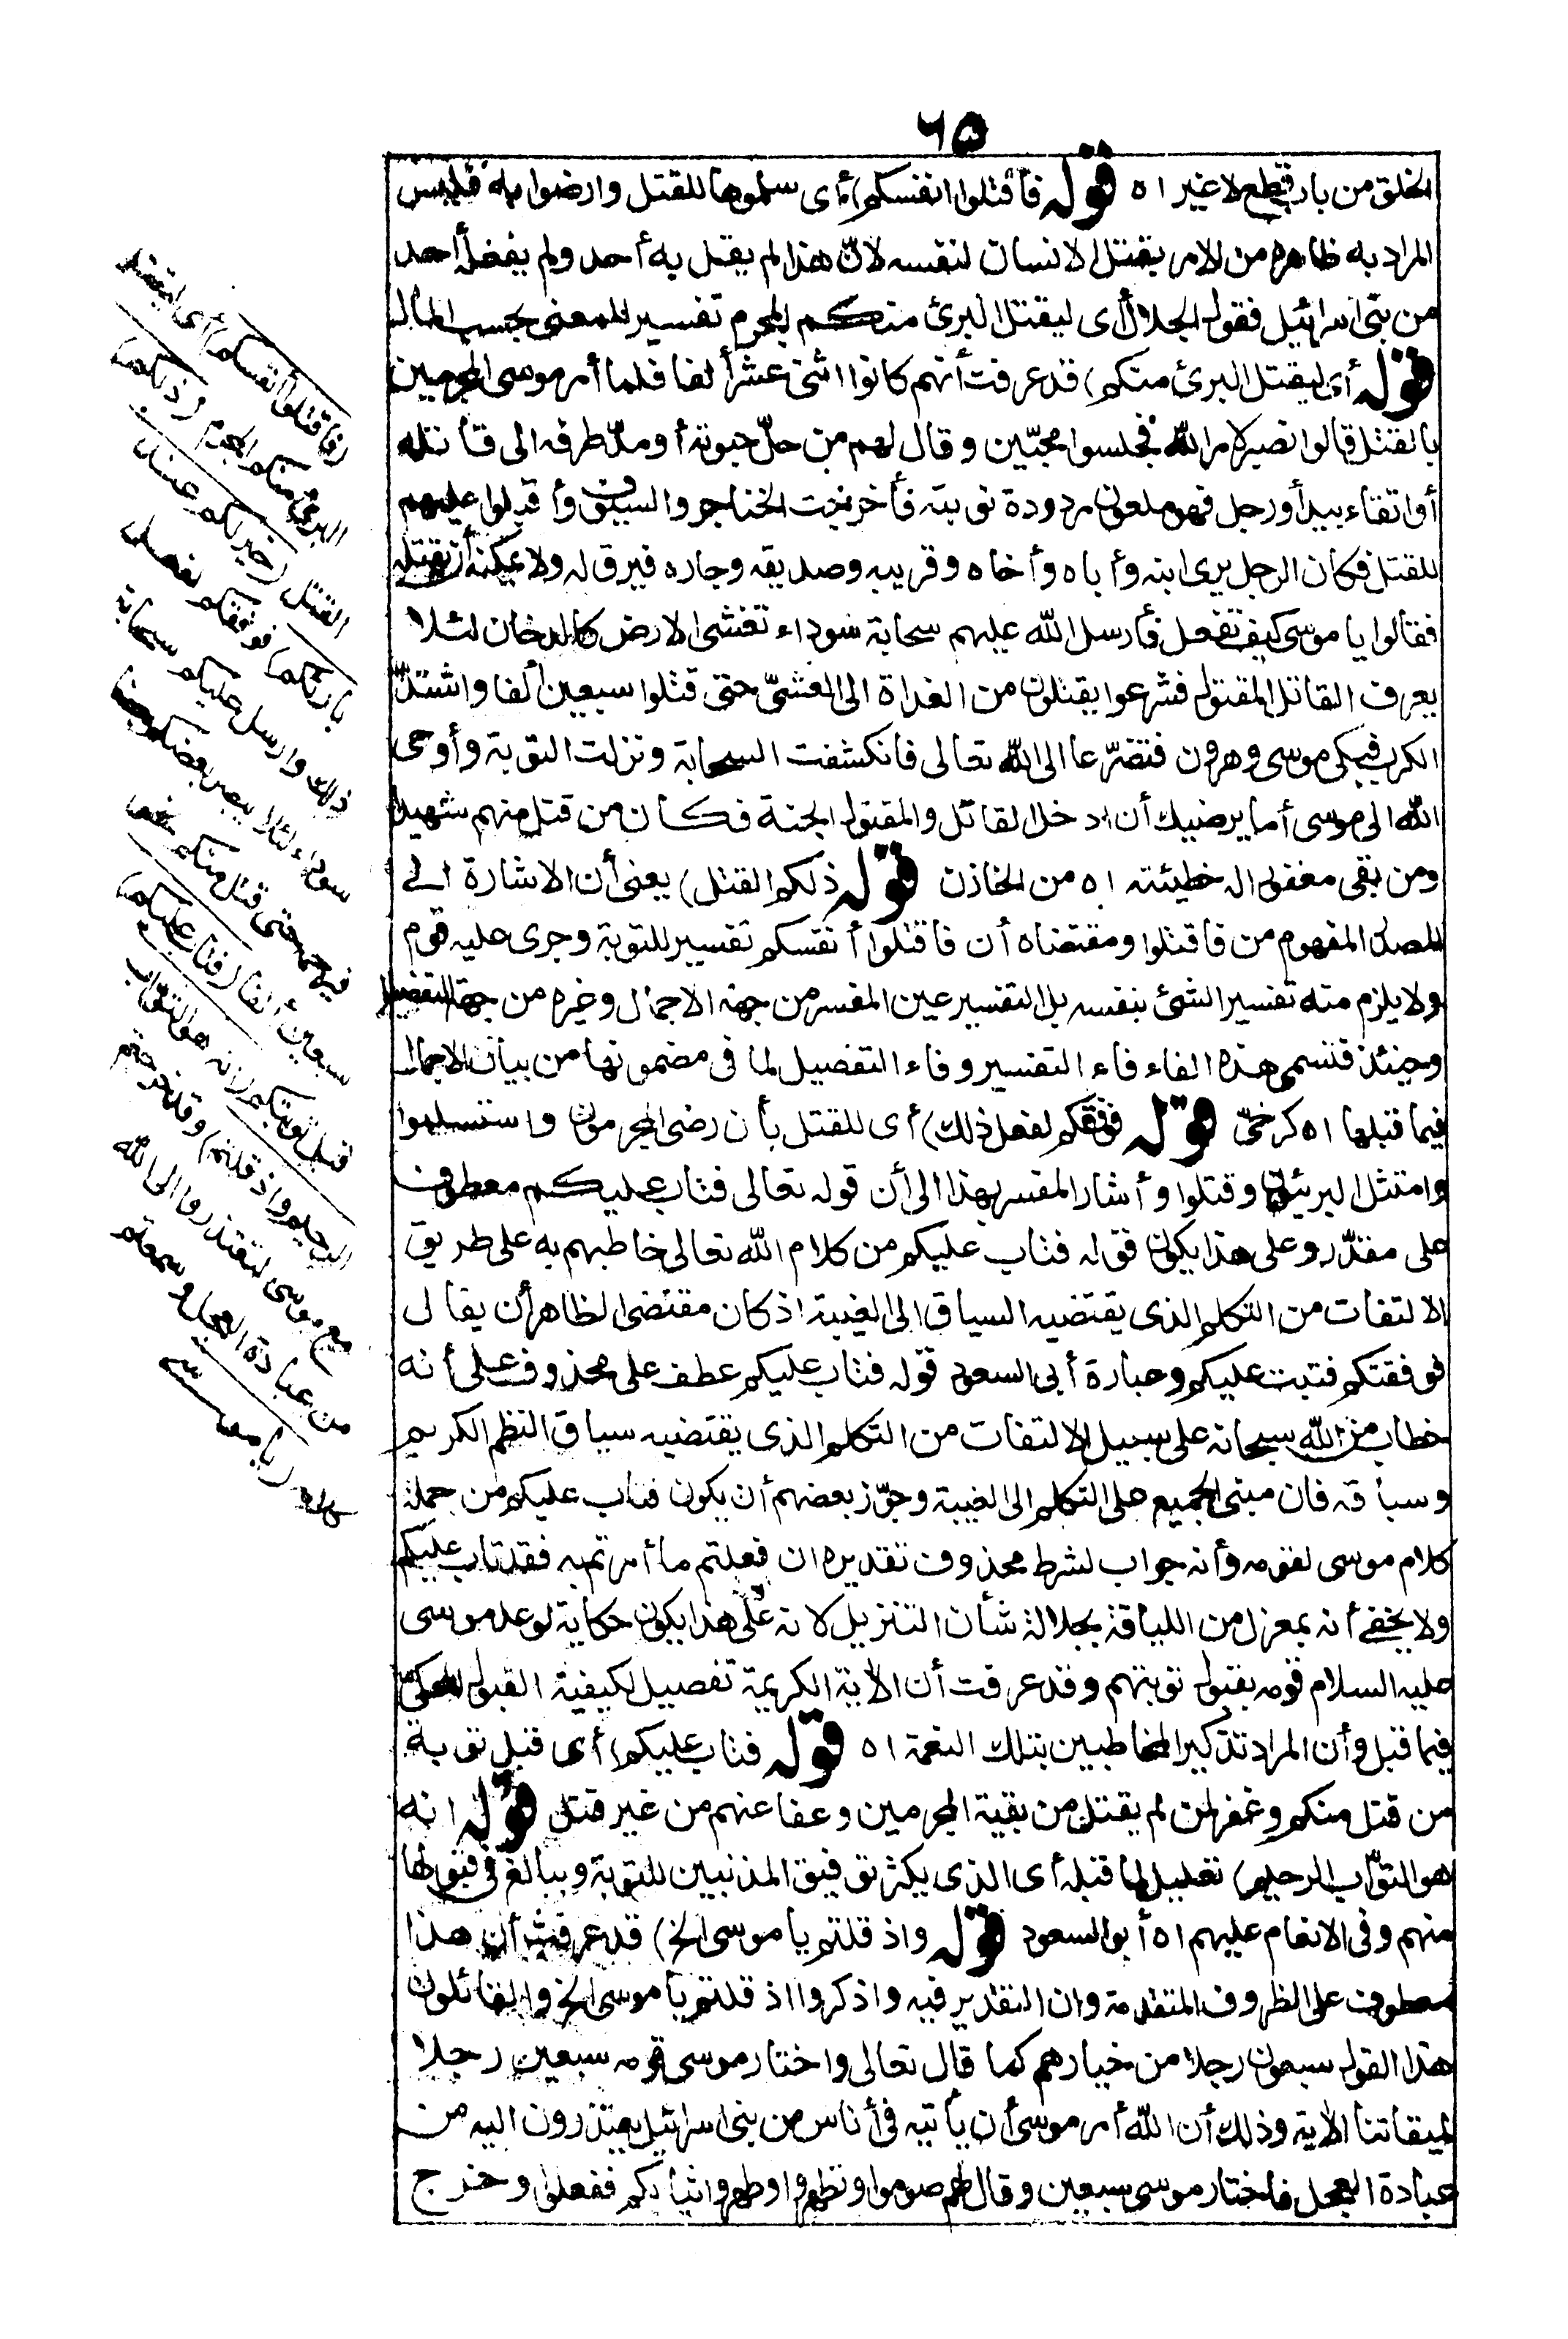 ٦٥
الخلق من باب قطع لا غير اه قوله فاقتلوا انفسكم) أى سلموها للقتل وارضوا به فليس
المراد به ظاهره من الامر بقتل الانسان لنفسه لانّ هذا لم يقل به أحد ولم يفعله أحد
من بنى اسرائيل فقول الجلال أى ليقتل البرئ منكم المجرم تفسير للمعنى بحسب المآل
قوله أى ليقتل البرئ منكم) قد عرفت أنهم كانوا اثنى عشر ألفا فلما أمر موسى المجرمين
بالقتل قالوا نصبر لامر الله فجلسوا محتبين وقال لهم من حلّ حبوته أو مدّ طرفه الى قاتله
أو اتقاه بيد أو رجل فهو ملعون مردودة توبته فأخرجت الخناجر والسيوف وأقبلوا عليهم
للقتل فكان الرجل يرى ابنه وأباه وأخاه وقريبه وصديقه وجاره فيرق له ولا يمكنه أن يقتله
فقالوا يا موسى كيف نفعل فأرسل الله عليهم سحابة سوداء تغشى الارض كالدخان لئلا
يعرف القاتل المقتول فشرعوا يقتلون من الغداة الى العشىّ حتى قتلوا سبعين ألفا واشتدّ
الكرب فبكى موسى وهرون فتضرّعا الى الله تعالى فانكشفت السحابة ونزلت التوبة وأوحى
الله الى موسى أما يرضيك أن ادخل القاتل والمقتول الجنة فكان من قتل منهم شهيدا
ومن بقى مغفور اله خطيئته اه من الخازن قوله ذلكم القتل) يعنى أن الاشارة الى
المصدر المفهوم من فاقتلوا ومقتضاه أن فاقتلوا أنفسكم تفسير للتوبة وجرى عليه قوم
ولا يلزم منه تفسير الشئ بنفسه بل التفسير عين المفسر من جهة الاجمال وغيره من جهة التفصيل
وحينئذ فتسمى هذه الفاء فاء التفسير وفاء التفصيل لما فى مضمونها من بيان الاجمال
فيما قبلها اه كرخىّ قوله فوفقكم لفعل ذلك) أى للقتل بأن رضى المجرمون واستسلموا
وامتثل البريئون وقتلوا وأشار المفسر بهذا الى أن قوله تعالى فتاب عليكم معطوف
على مقدّر وعلى هذا يكون قوله فتاب عليكم من كلام الله تعالى خاطبهم به على طريق
الالتفات من التكلم الذى يقتضيه السياق الى الغيبة اذ كان مقتضى الظاهر أن يقال
فوفقتكم فتبت عليكم وعبارة أبى السعود قوله فتاب عليكم عطف على محذوف على أنه
خطاب من الله سبحانه على سبيل الالتفات من التكلم الذى يقتضيه سياق النظم الكريم
وسباقه فان مبنى الجميع على التكلم الى الغيبة وجوّز بعضهم أن يكون فتاب عليكم من جملة
كلام موسى لقومه وأنه جواب لشرط محذوف تقديره ان فعلتم ما أمرتم به فقد تاب عليكم
ولا يخفى أنه بمعزل من اللياقة بجلالة شأن التنزيل لانه على هذا يكون حكاية لوعد موسى
عليه السلام قومه بقبول توبتهم وقد عرفت أن الآية الكريمة تفصيل لكيفية القبول المحكىّ
فيما قبل وأن المراد تذكير المخاطبين بتلك النعمة اه قوله فتاب عليكم) أى قبل توبة
من قتل منكم وغفر لمن لم يقتل من بقية المجرمين وعفا عنهم من غير قتل قوله انه
هو التوّاب الرحيم) تعليل لما قبله أى الذى يكثر توفيق المذنبين للتوبة ويبالغ فى قبولها
منهم وفى الانعام عليهم اه أبو السعود قوله واذ قلتم يا موسى الخ) قد عرفت أن هذا
معطوف على الظروف المتقدمة وان التقدير فيه واذكروا اذ قلتم يا موسى الخ والقائلون
هذا القول سبعون رجلا من خيارهم كما قال تعالى واختار موسى قومه سبعين رجلا
لميقاتنا الآية وذلك أن الله أمر موسى أن يأتيه فى أناس من بنى اسرائيل يعتذرون اليه من
عبادة العجل فاختار موسى سبعين وقال لهم صوموا وتطهروا وطهروا ثيابكم ففعلوا وخرج
(فاقتلوا أنفسكم) أى ليقتل
البرئ منكم المجرم (ذلكم)
القتل (خير لكم عند
بارئكم) فوفقكم لفعل
ذلك وارسل عليكم سحابة
سوداء لئلا يبصر بعضكم بعضا
فيرحمه حتى قتل منكم نحو
سبعين ألفا (فتاب عليكم)
قبل توبتكم (انه هو التوّاب
الرحيم واذ قلتم) وقد خرجتم
مع موسى لتعتذروا الى الله
من عبادة العجل وسمعتم
كلامه (يا موسى